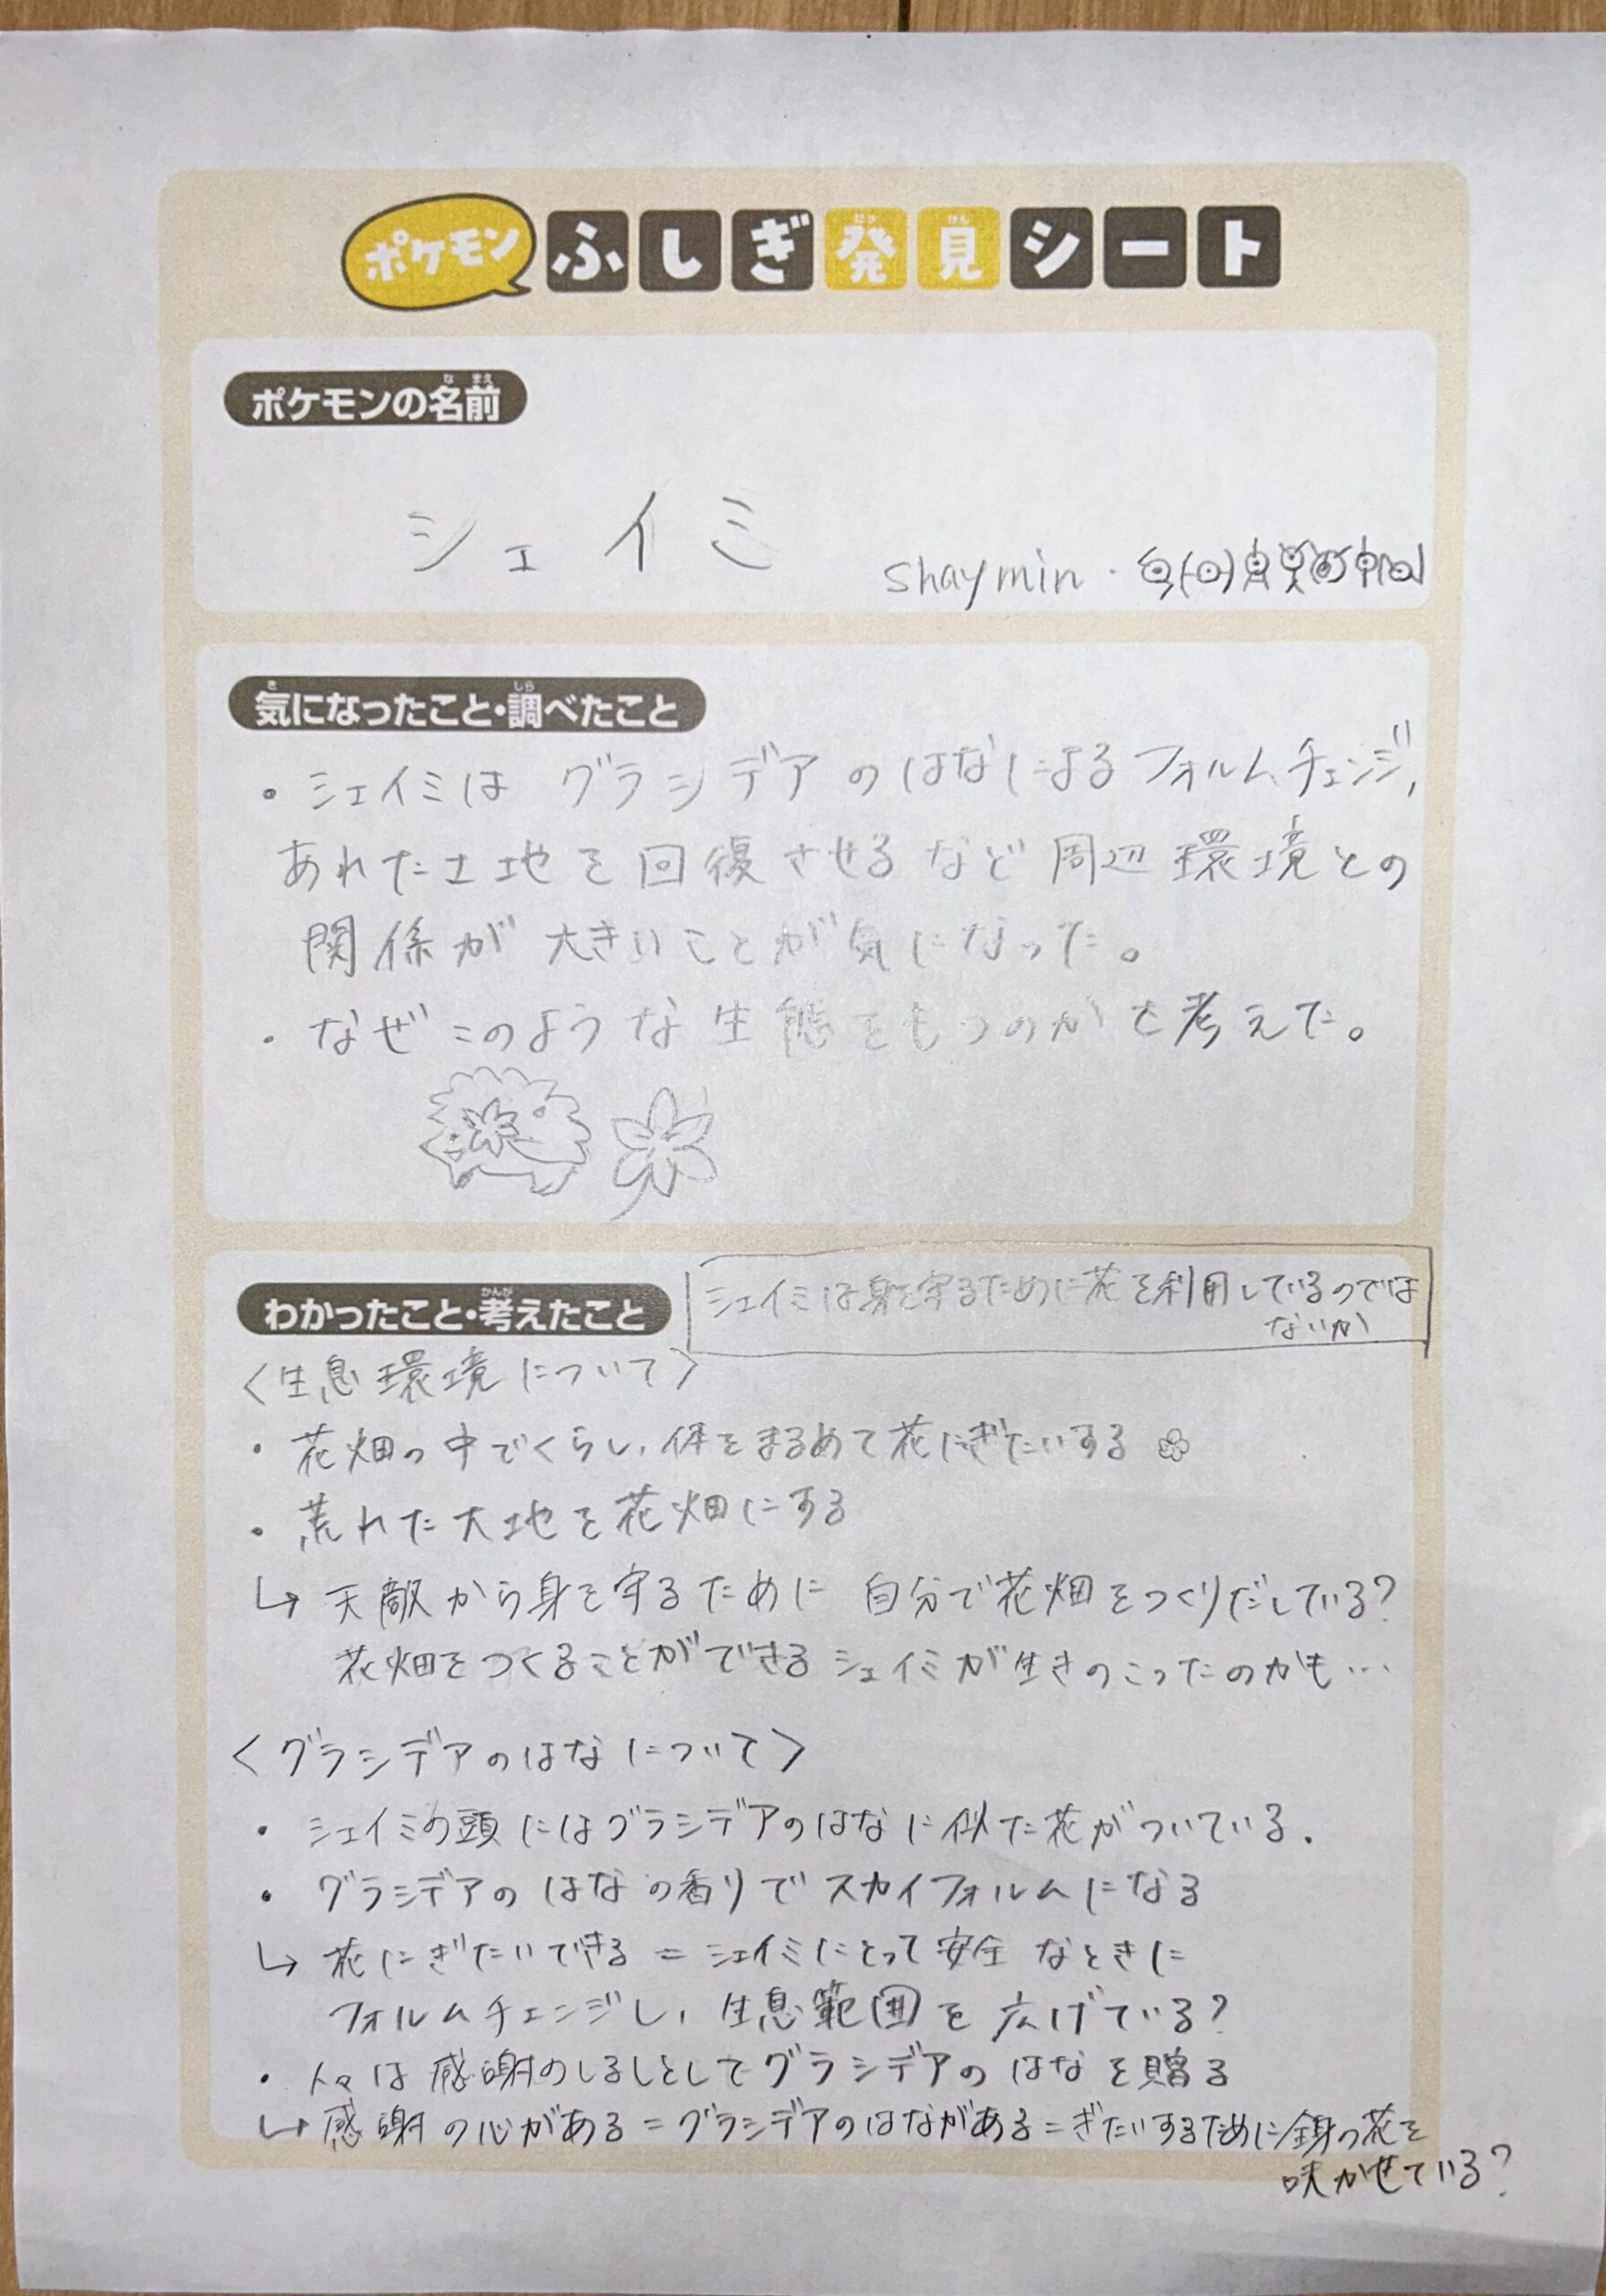 ポケモン ふしぎ発見シート
ポケモンの名前
シェイミ
shaymin
気になったこと・調べたこと
・シェイミは グラシデアのはなによるフォルムチェンジ,
あれた土地を回復させるなど周辺環境との
関係が大きいことが気になった。
・なぜこのような生態をもつのかを考えた。
わかったこと・考えたこと
シェイミは身を守るために花を利用しているのでは
ないか
〈生息環境について〉
・花畑の中でくらし、体をまるめて花にぎたいする
・荒れた大地を花畑にする
↳ 天敵から身を守るために 自分で花畑をつくりだしている?
花畑をつくることができるシェイミが生きのこったのかも…
〈グラシデアのはなについて〉
・シェイミの頭にはグラシデアのはなに似た花がついている.
・グラシデアのはなの香りでスカイフォルムになる
↳ 花にぎたいできる = シェイミにとって安全なときに
フォルムチェンジし、生息範囲を広げている?
・人々は感謝のしるしとしてグラシデアのはなを贈る
↳ 感謝の心がある=グラシデアのはながある=ぎたいするために全身の花を
咲かせている?